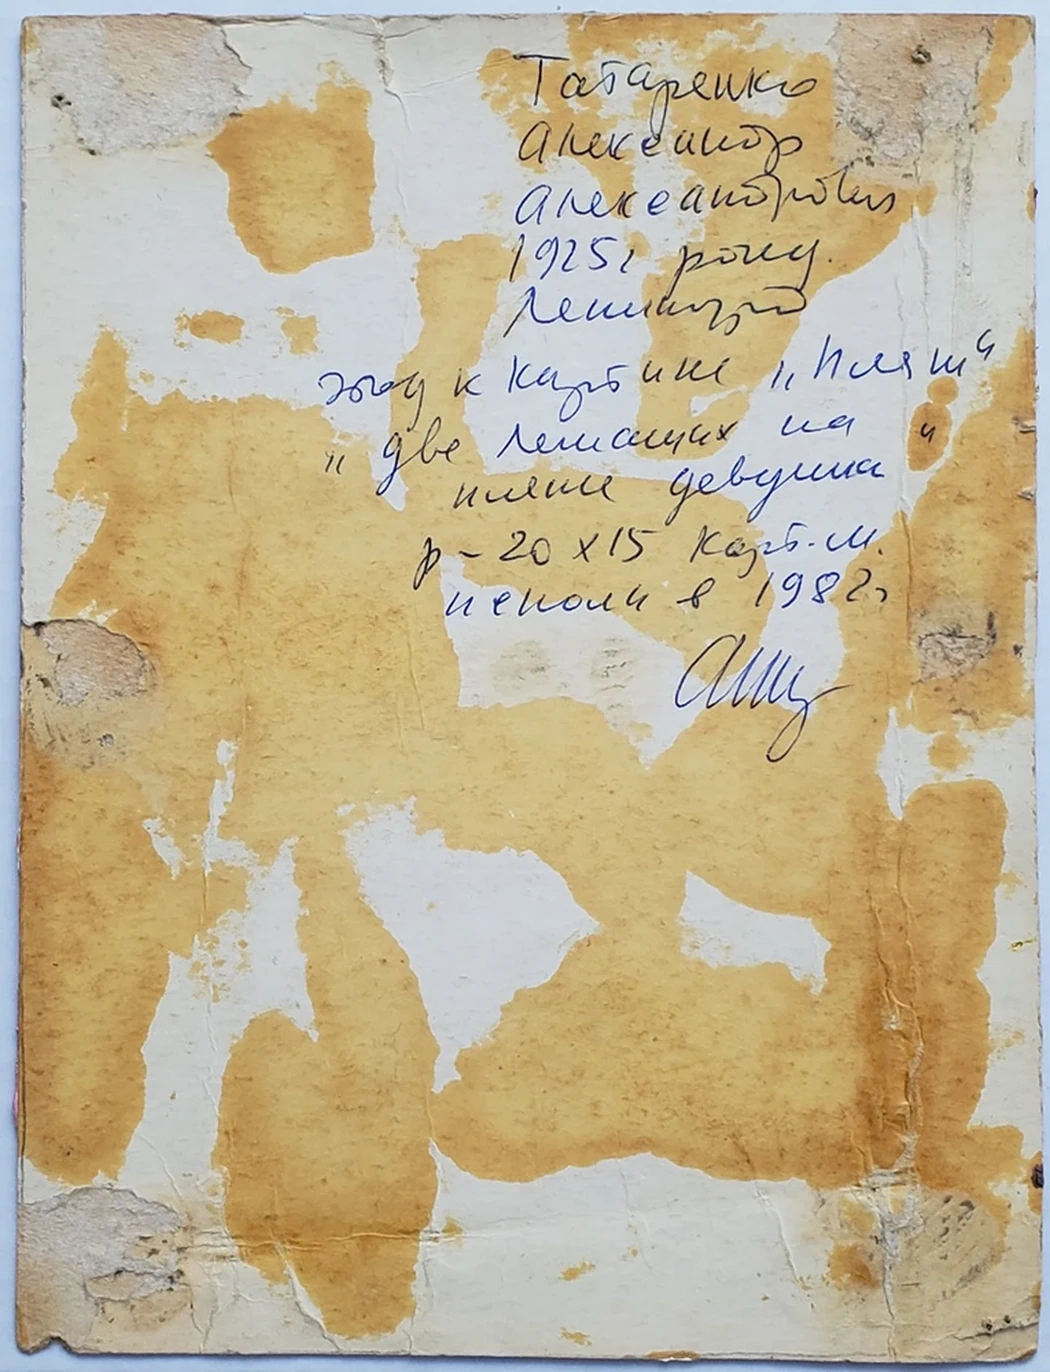 Татаренко
Александр
Александрович
1925г рожд.
Ленинград
этюд к картине „Пляж“
„две лежащих на “
пляже девушка
р-20х15 карт.м.
исполн в 1982г